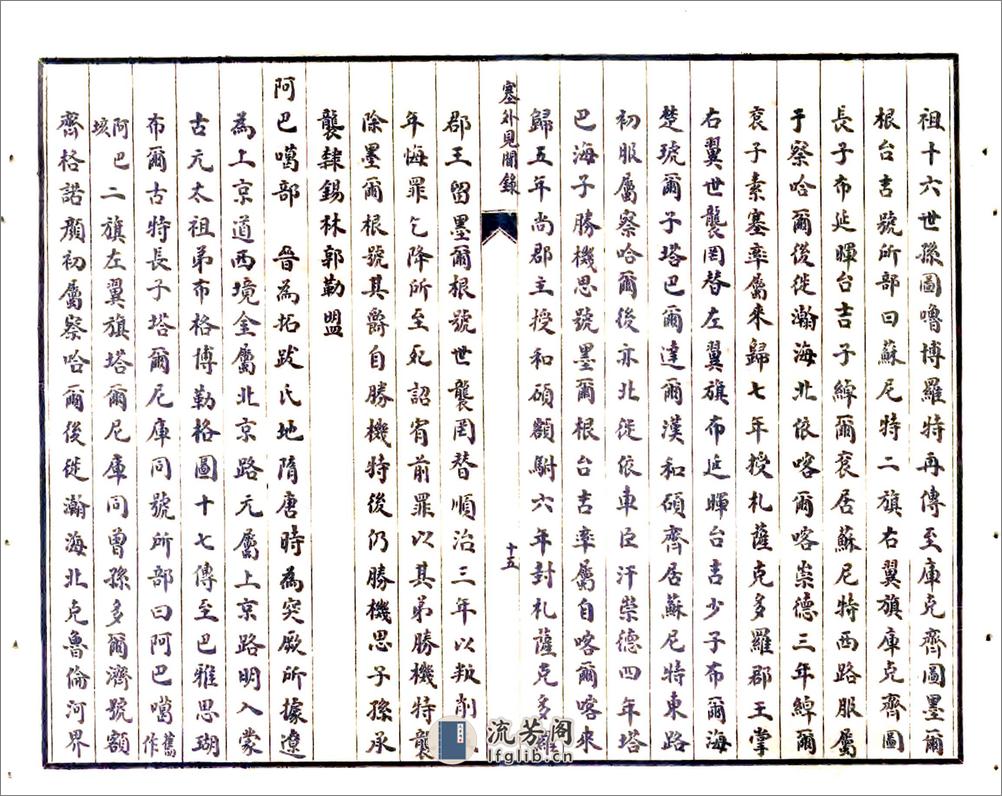 祖十六世孫圖嚕博羅特再傳至庫克齊圖墨爾
根台吉號所部曰蘇尼特二旗右翼旗庫克齊圖
長子布延暉台吉子綽爾袞居蘇尼特西路服屬
于察哈爾後徙瀚海北依喀爾喀崇德三年綽爾
袞子素塞率屬來歸七年授札薩克多羅郡王掌
右翼世襲罔替左翼旗布延暉台吉少子布爾海
楚琥爾子塔巴爾達爾漢和碩齊居蘇尼特東路
初服屬察哈爾後亦北徙依車臣汗崇德四年塔
巴海子勝機思號墨爾根台吉率屬自喀爾喀來
歸五年尚郡主授和碩額駙六年封札薩克多羅
塞外見聞錄
十五
郡王留墨爾根號世襲罔替順治三年以叛削
年悔罪乞降所至死詔宥前罪以其弟勝機特襲
除墨爾根號其爵自勝機特後仍勝機思子孫承
襲隸錫林郭勒盟
阿巴噶部 晉為拓跋氏地隋唐時為突厥所據遼
為上京道西境金屬北京路元屬上京路明入蒙
古元太祖弟布格博勒格圖十七傳至巴雅思瑚
布爾古特長子塔爾尼庫同號所部曰阿巴噶舊作
阿巴垓二旗左翼旗塔爾尼庫同曾孫多爾濟號額
齊格諾顏初屬察哈爾後徙瀚海北克魯倫河界
流芳阁
lfglib.cn